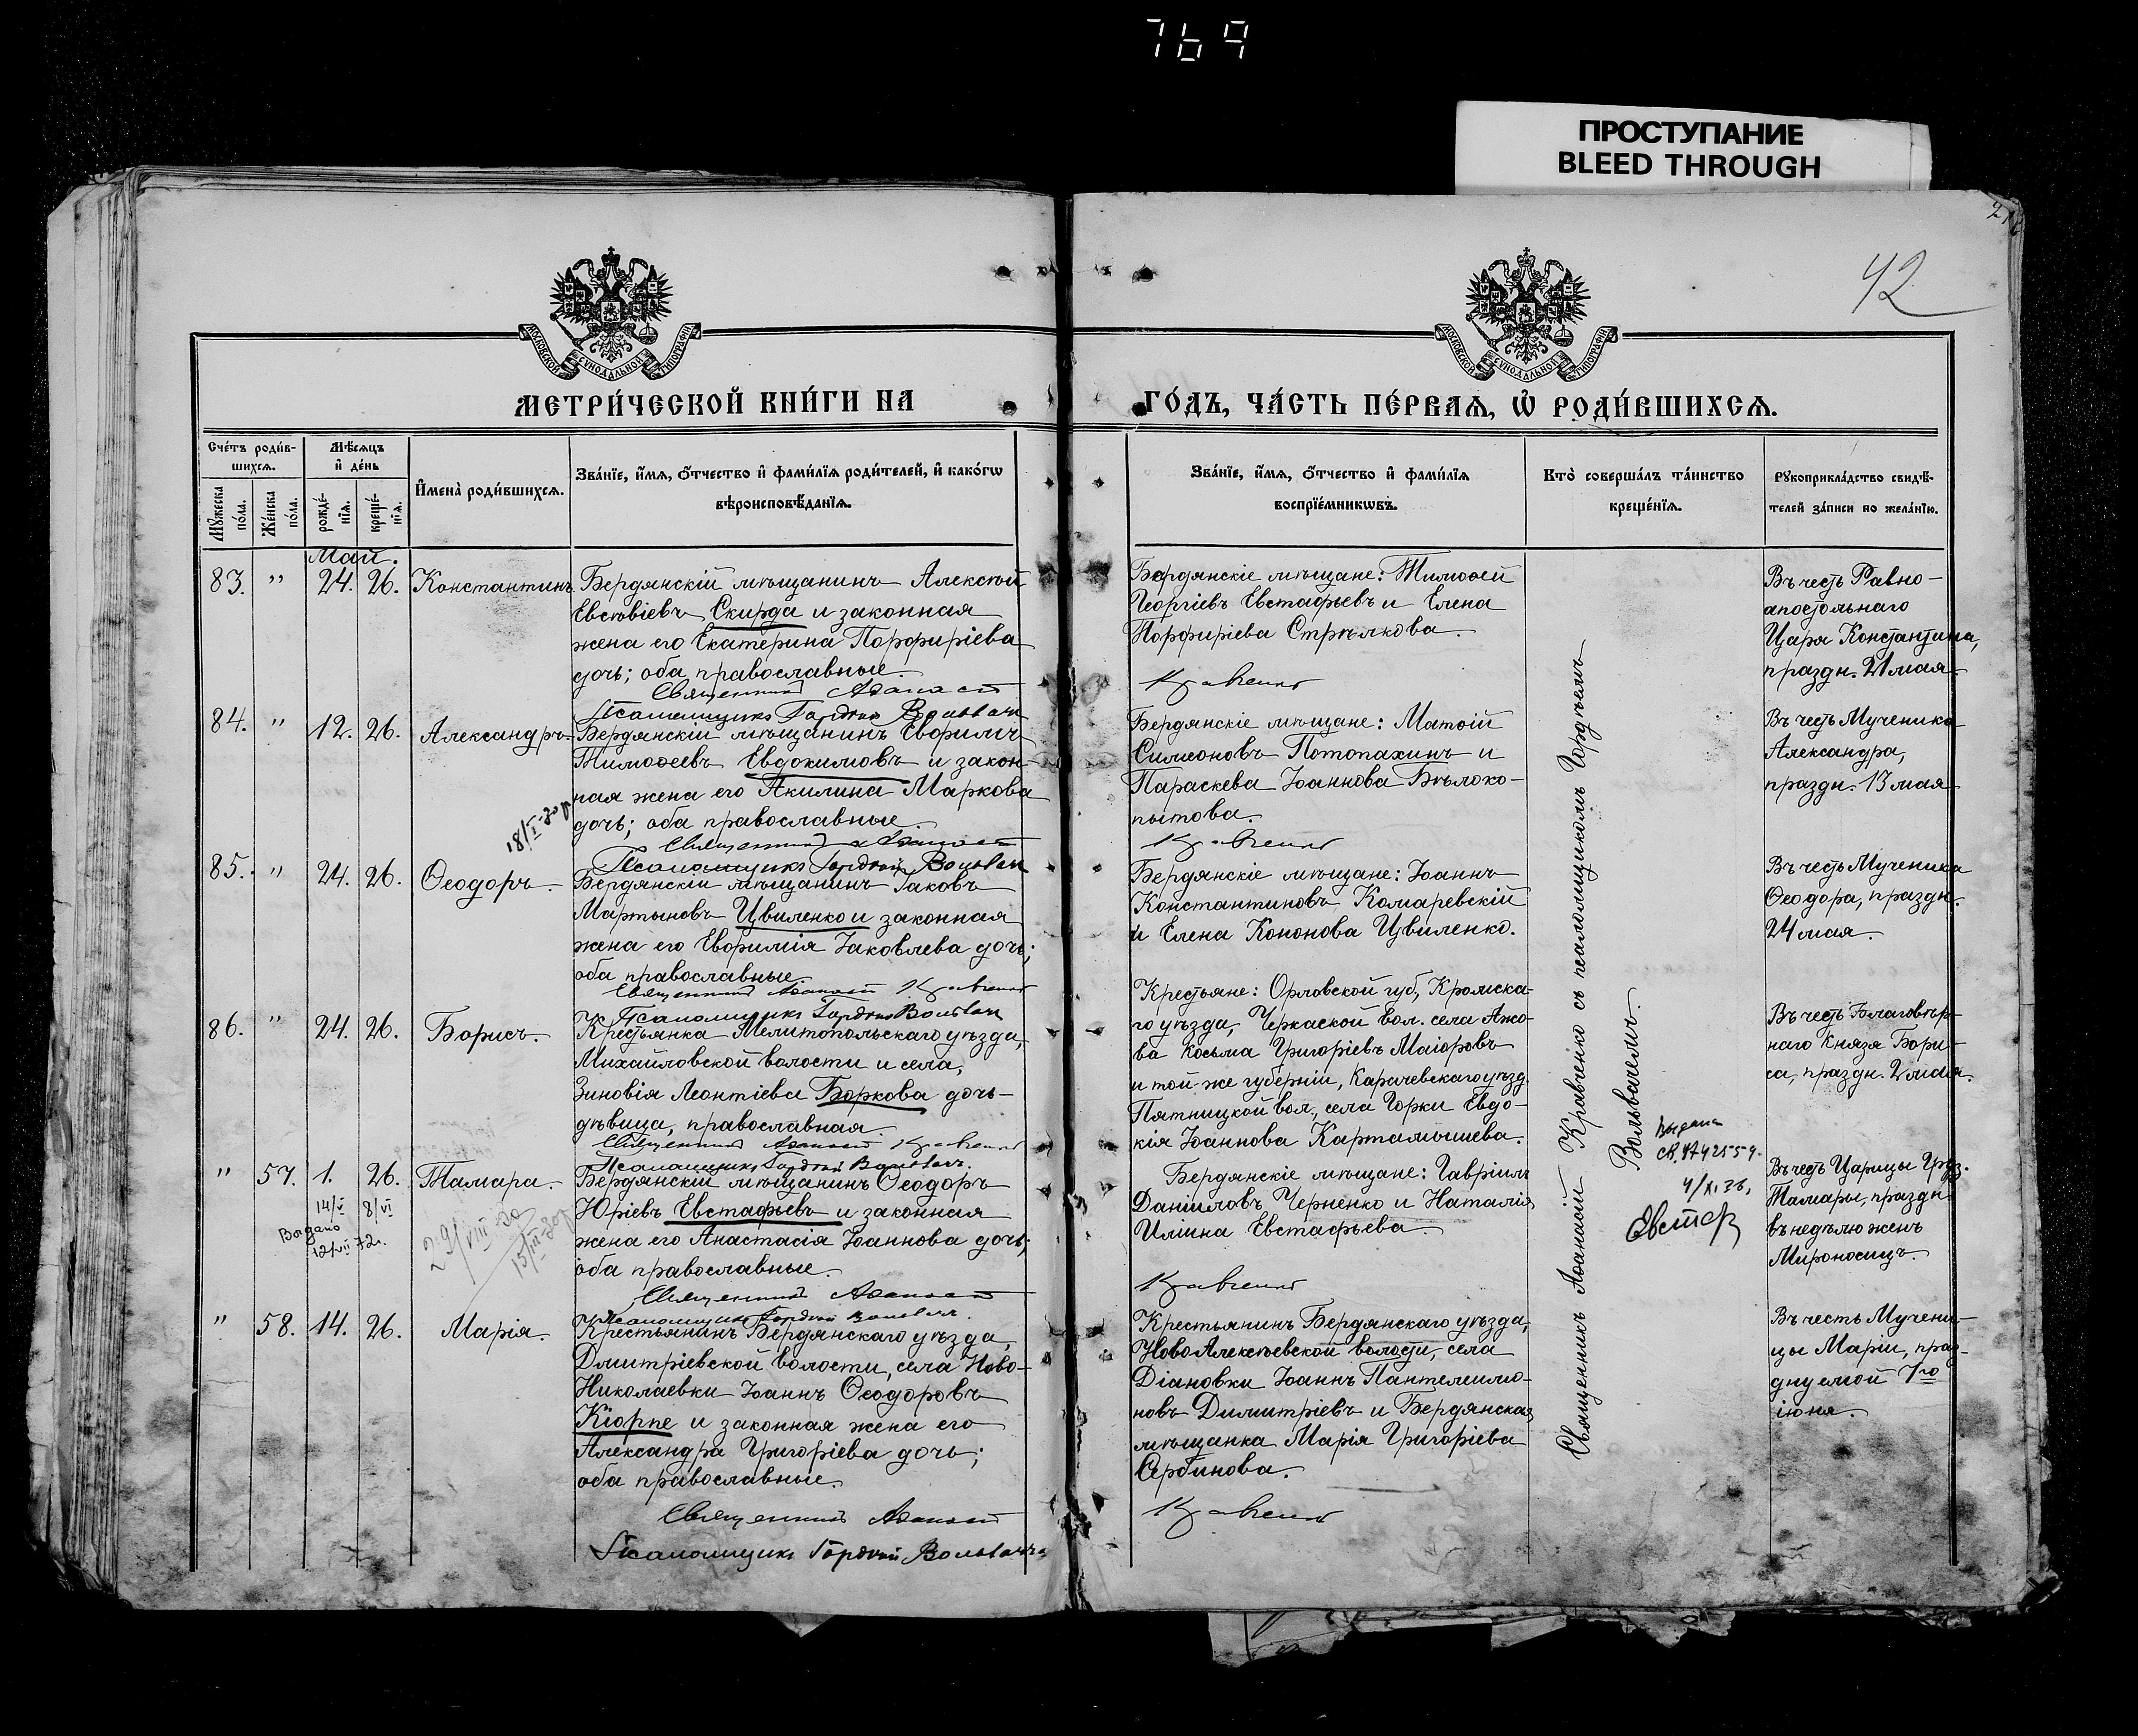 769
ПРОСТУПАНИЕ
BLEED THROUGH
42
МОСКОВСКОЙ СѴНОДАЛЬНОЙ ТИПОГРАФІИ
МОСКОВСКОЙ СѴНОДАЛЬНОЙ ТИПОГРАФІИ
МЕТРИ́ЧЕСКОЙ КНИ́ГИ НА
ГО́ДЪ, ЧА́СТЬ ПЕ́РВАѦ, Ѡ҆ РОДИ́ВШИХСѦ.
Сче́тъ роди́в-
шихсѧ.
Мѣ́сѧцъ
и҆ де́нь
Мꙋ́жеска
по́ла.
Же́нска
по́ла.
рожде́-
нїѧ.
креще́-
нїѧ.
И҆мена̀ роди́вшихсѧ.
Зва́нїе, и҆́мѧ, ѻ҆́тчество и҆ фами́лїѧ роди́телей, и҆ како́гѡ
вѣроисповѣ́данїѧ.
Зва́нїе, и҆́мѧ, ѻ҆́тчество и҆ фами́лїѧ
воспрїе́мникѡвъ.
Кто̀ соверша́лъ та́инство
креще́нїѧ.
Рꙋкоприкла́дство свидѣ́-
телей за́писи по жела́нїю.
Май.
83. " 24. 26. Константинъ
Бердянскій мѣщанинъ Алексѣй
Евсѣвіевъ Скирда и законная
жена его Екатерина Порфиріева
дочь; оба православные.
Священникъ Аѳанасій
Псаломщикъ Гордѣй Вольвач
Бердянскіе мѣщане: Тимоѳей
Георгіевъ Евстафьевъ и Елена
Порфиріева Стрѣлкова.
Кравченко
Въ честь Равно-
апостольнаго
Царя Константина,
праздн. 21 мая.
84. " 12. 26. Александръ.
Бердянскій мѣщанинъ Евфимій
Тимоѳеевъ Евдокимовъ и закон-
ная жена его Акилина Маркова
дочь; оба православные.
Священникъ Аѳанасій
Псаломщикъ Гордѣй Вольвач
Бердянскіе мѣщане: Матѳій
Симеоновъ Потопахинъ и
Параскева Іоаннова Бѣлоко-
пытова.
Кравченко
Въ честь Мученика
Александра,
праздн. 13 мая
18/I-30г
85. " 24. 26. Ѳеодоръ.
Бердянскій мѣщанинъ Іаковъ
Мартыновъ Цвиленко и законная
жена его Евфимія Іаковлева дочь;
оба православные.
Священникъ Аѳанасій Кравченко
Псаломщикъ Гордѣй Вольвач
Бердянскіе мѣщане: Іоаннъ
Константиновъ Комаревскій
и Елена Кононова Цвиленко.
Въ честь Мученика
Ѳеодора, праздн.
24 мая.
86. " 24. 26. Борисъ.
Крестьянка Мелитопольскаго уѣзда,
Михайловской волости и села,
Зиновія Леонтіева Боркова дочь-
дѣвица, православная.
Священникъ Аѳанасій Кравченко
Псаломщикъ Гордѣй Вольвач.
Крестьяне: Орловской губ., Кромска-
го уѣзда, Черкаской вол. села Ажо-
ва Косьма Григоріевъ Маіоровъ
и той-же губерніи, Карачевскаго уѣзд.
Пятницкой вол., села Горки Евдо-
кія Іоаннова Картамышева.
Въ честь Благовѣр-
наго Князя Бори-
са, праздн. 2 мая.
" 57. 1. 26. Тамара.
14/V 8/VI
Выдано
12/VII 72г.
29/VIII-30
15/III-30г
Бердянскій мѣщанинъ Ѳеодоръ
Юріевъ Евстафьевъ и законная
жена его Анастасія Іоаннова дочь;
оба православные.
Священникъ Аѳанасій
Псаломщикъ Гордѣй Вольвач.
Бердянскіе мѣщане: Гавріилъ
Даніиловъ Черненко и Наталія
Иліина Евстафьева.
Кравченко
Въ честь Царицы Груз.
Тамары, праздн.
въ недѣлю женъ
Мироносицъ.
" 58. 14. 26. Марія.
Крестьянинъ Бердянскаго уѣзда,
Дмитріевской волости, села Ново-
Николаевки Іоаннъ Ѳеодоровъ
Кіорпе и законная жена его
Александра Григоріева дочь;
оба православные.
Священникъ Аѳанасій
Псаломщикъ Гордѣй Вольвачъ
Крестьянинъ Бердянскаго уѣзда,
НовоАлексѣевской волости, села
Діановки Іоаннъ Пантелеимо-
новъ Димитріевъ и Бердянская
мѣщанка Марія Григоріева
Сербинова.
Кравченко
Въ честь Мучени-
цы Маріи, праз-
днуемой 7го
іюня.
Священникъ Аѳанасій Кравченко съ псаломщикомъ Гордѣемъ
Вольвачемъ.
Выдано
св.
4/XI.36,
Евстаф